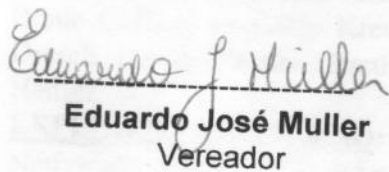 Eduardo J Müller
Eduardo José Muller
Vereador